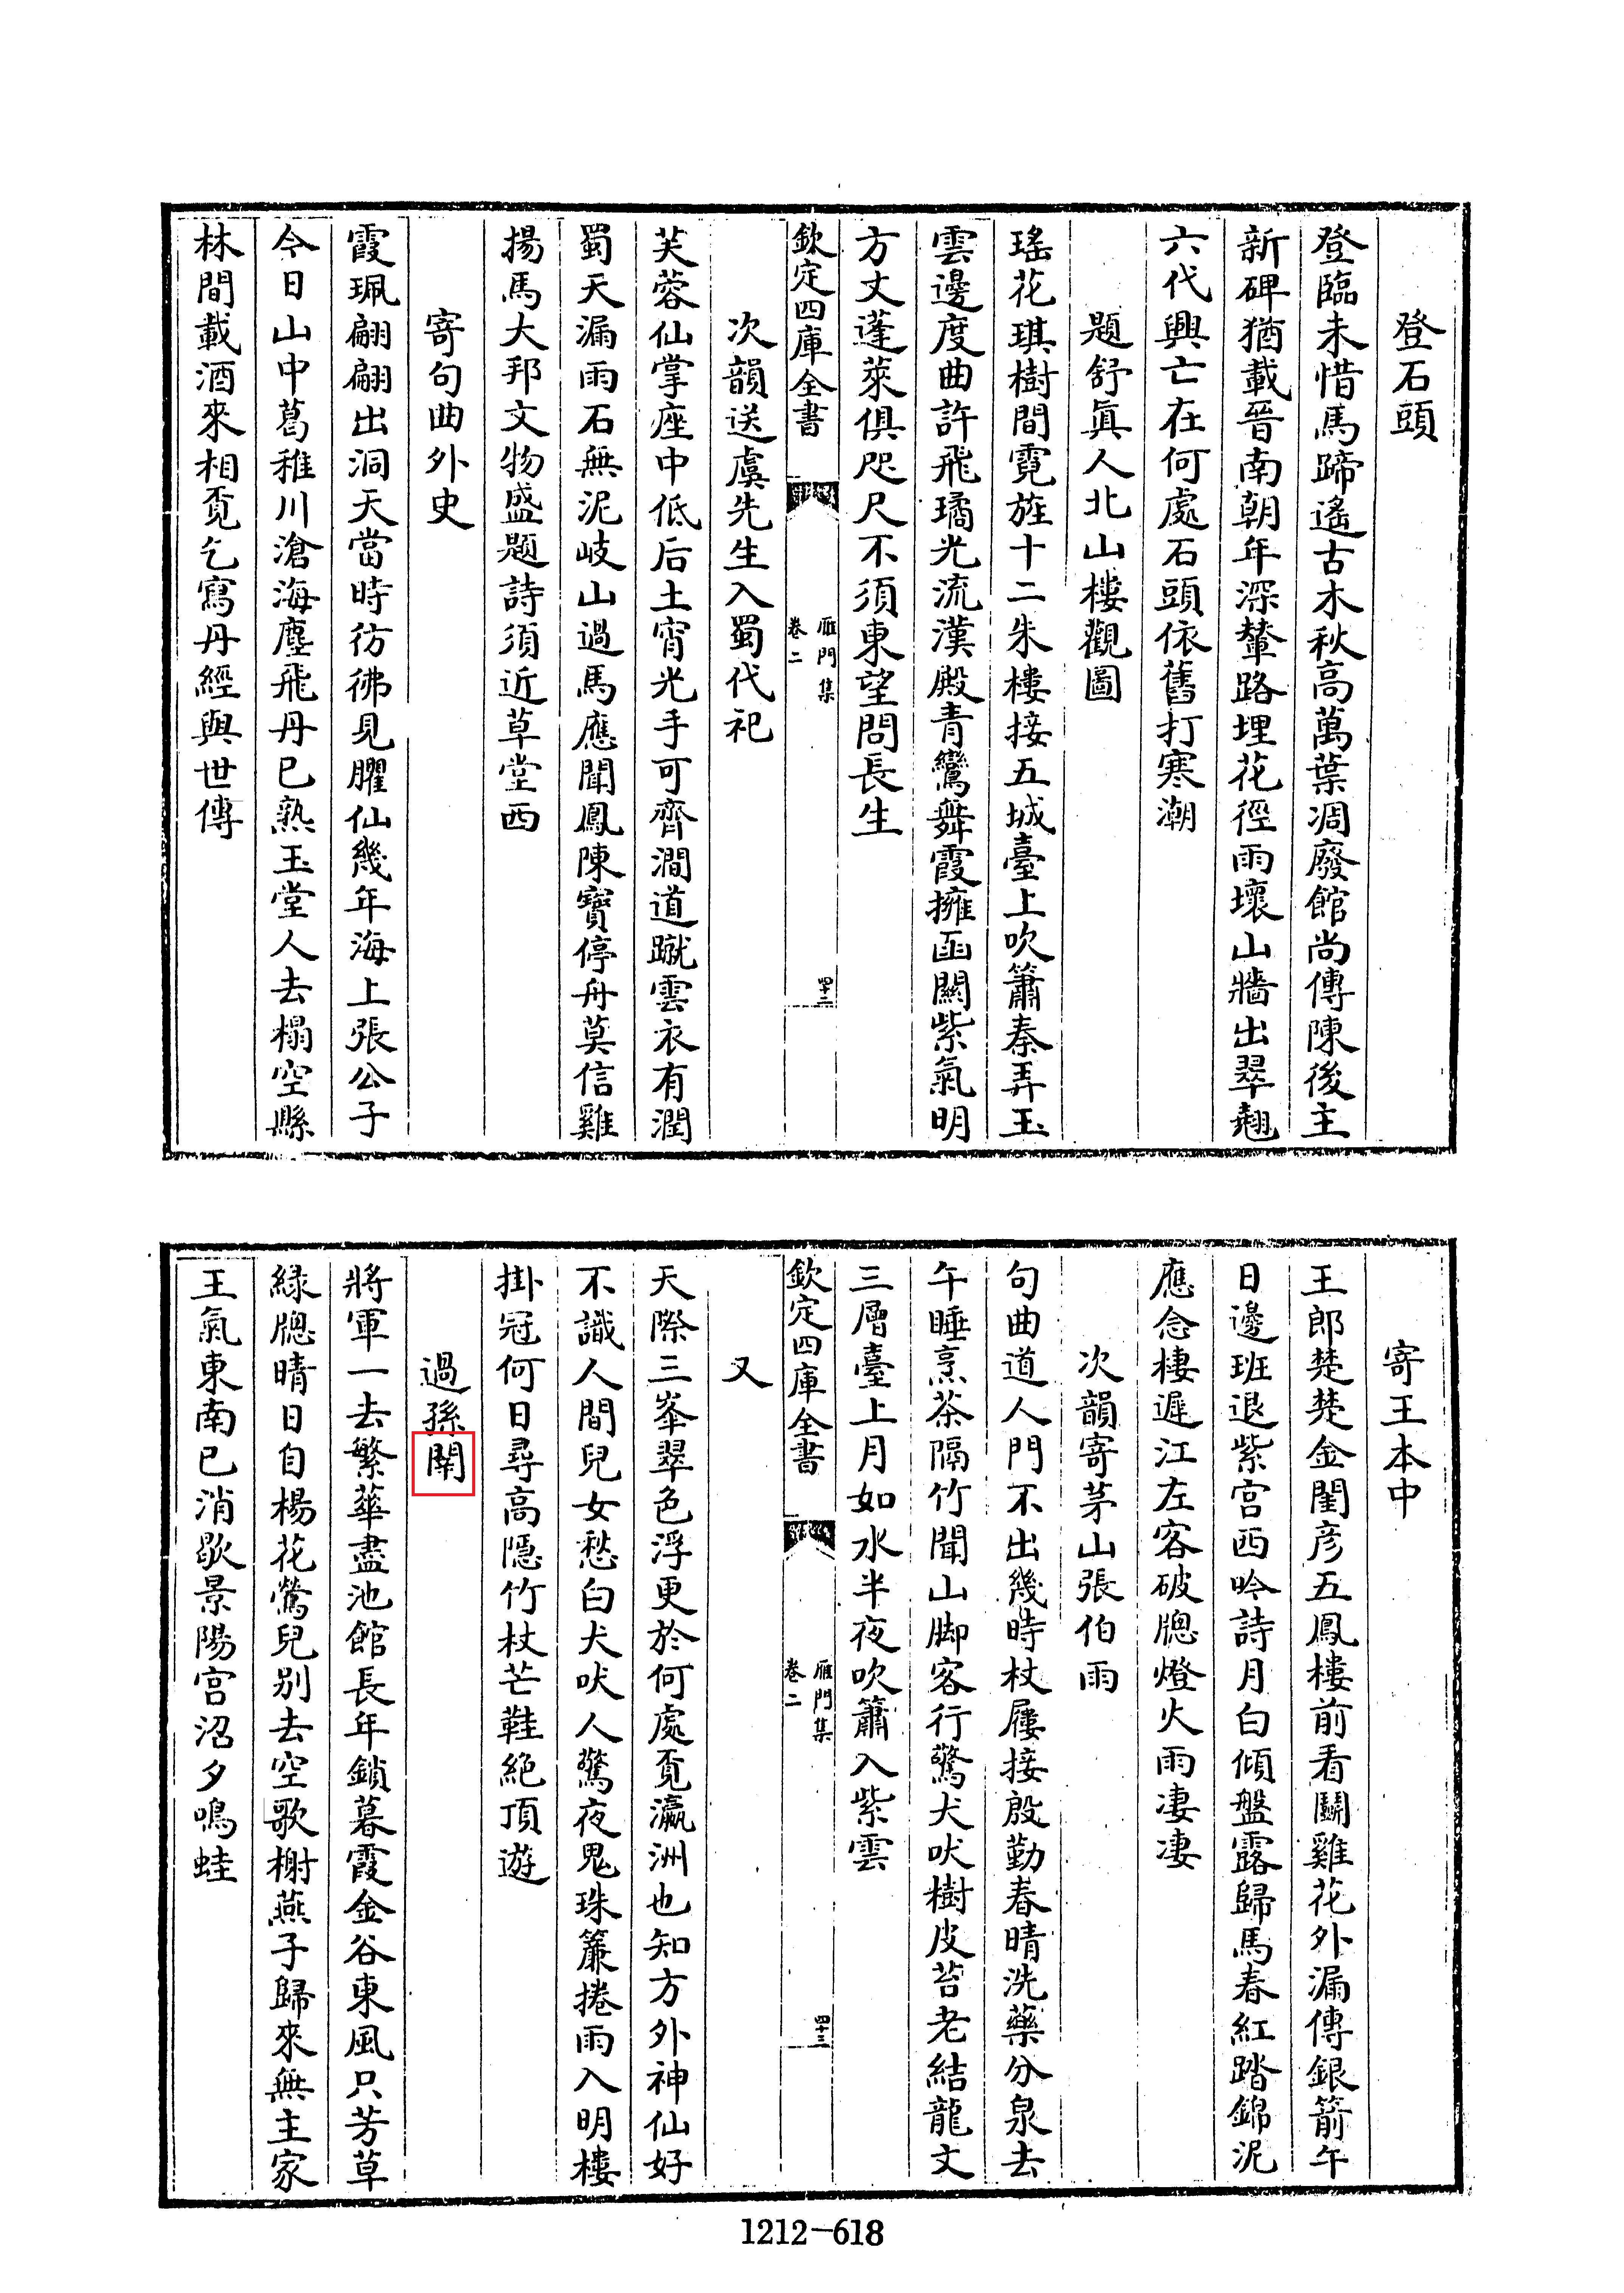 登石頭
登臨未惜馬蹄遙古木秋高萬葉凋廢館尚傳陳後主
新碑猶載晉南朝年深輦路埋花徑雨壞山牆出翠翹
六代興亡在何處石頭依舊打寒潮
題舒真人北山樓觀圖
瑤花琪樹間霓旌十二朱樓接五城臺上吹簫秦弄玉
雲邊度曲許飛璚光流漢殿青鸞舞霞擁函關紫氣明
方丈蓬萊俱咫尺不須東望問長生
欽定四庫全書
雁門集
卷二
四十二
次韻送虞先生入蜀代祀
芙蓉仙掌座中低后土宵光手可齊澗道蹴雲衣有潤
蜀天漏雨石無泥岐山過馬應聞鳳陳寶停舟莫信雞
揚馬大邦文物盛題詩須近草堂西
寄句曲外史
霞珮翩翩出洞天當時彷彿見臞仙幾年海上張公子
今日山中葛稚川滄海塵飛丹已熟玉堂人去榻空縣
林間載酒來相覔乞寫丹經與世傳
寄王本中
王郎楚楚金閨彥五鳳樓前看鬭雞花外漏傳銀箭午
日邊班退紫宮西吟詩月白傾盤露歸馬春紅踏錦泥
應念棲遲江左客破牕燈火雨淒淒
次韻寄茅山張伯雨
句曲道人門不出幾時杖屨接殷勤春晴洗藥分泉去
午睡烹茶隔竹聞山脚客行驚犬吠樹皮苔老結龍文
三層臺上月如水半夜吹簫入紫雲
欽定四庫全書
雁門集
卷二
四十三
又
天際三峯翠色浮更於何處覔瀛洲也知方外神仙好
不識人間兒女愁白犬吠人驚夜鬼珠簾捲雨入明樓
掛冠何日尋高隱竹杖芒鞋絕頂遊
過孫
將軍一去繁華盡池館長年鎖暮霞金谷東風只芳草
緑牕晴日自楊花鶯兒别去空歌榭燕子歸來無主家
王氣東南已消歇景陽宮沼夕鳴蛙
1212-618